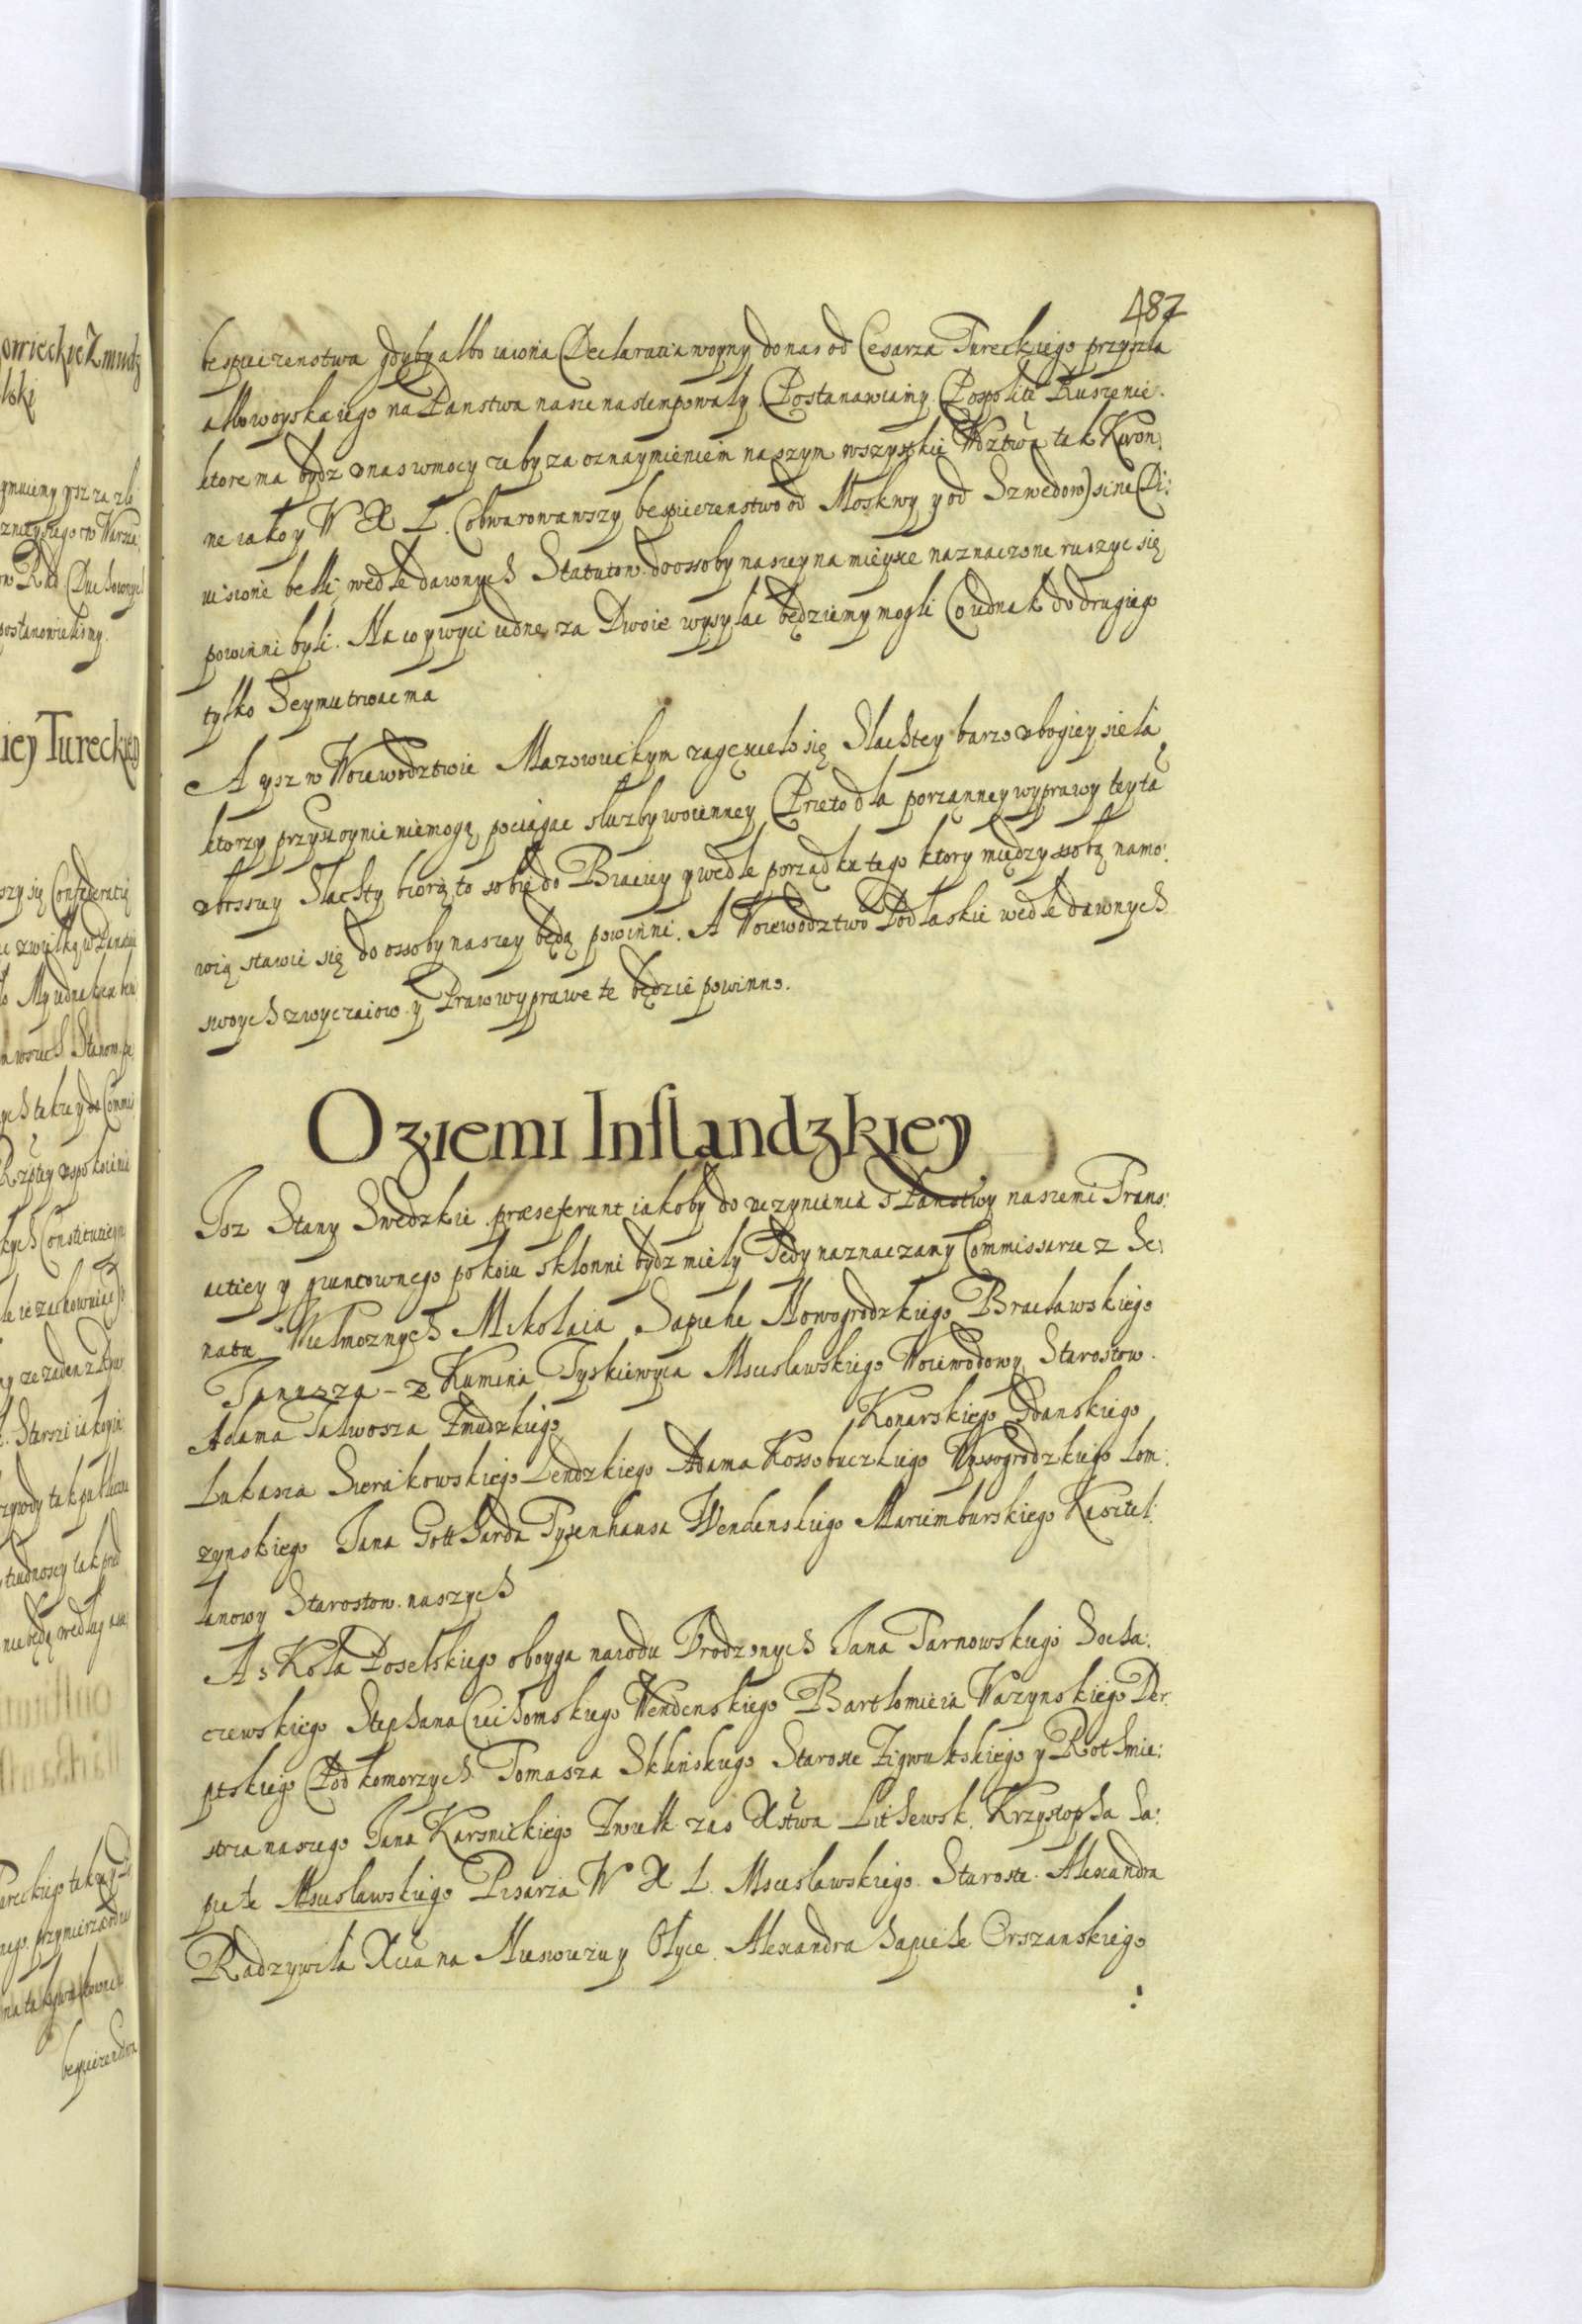 487
bespieczenstwa gdyby albo iawna Declaratia woyny do nas od Cesarza Tureckiego przyszła
albo woyska iego na Panstwa nasze nastempowały. Postanawiamy Pospolite Ruszenie.
ktore ma bydz v nas w mocy ze by za oznaymieniem naszym wszytkie Wdztwa tak Koron:
ne iako y W X L. (obwarowawszy bespieczenstwo od Moskwy y od Szwedow) sine Di:
uisione belli wedle dawnych Statutow do ossoby naszey na mieysce naznaczone ruszyc się
powinni byli. Na co y wyci iedne za Dwoie wysylac będziemy mogli Co iednak do drugiego
tylko Seymu trwac ma
A ysz w Woiewodztwie Mazowieckym zagęscieło się Slachtey barzo vbogiey sieła,
ktorzy przystoynie niemogą pociągac służby woienney Przeto dla porząnney wyprawy tey ta
vbosszey Slachty biorą to sobie do Braciey y wedle porządku tego ktory między sobą namo:
wią stawic się do ossoby naszey będą powinni. A Woiewodztwo Podlaskie wedle dawnych
swoych zwyczaiow y Praw wyprawe te będzie powinno.
O ziemi Inflandzkiey
Isz Stany Swedzkie præseferunt iakoby do uczynienia s Panstwy naszemi Trans:
actiey y gruntownego pokoiu skłonni bydz mieły Tedy naznaczamy Commissarze z Se:
natu Wielmoznych Mikołaia Sapiehe Nowogrodzkiego Bracławskiego
Janusza - z Kumina Tyskiewyca Mscisławskiego Woiewodowy Starostow.
Adama Talwosza Zmudzkiego Konarskiego Gdanskiego
Lukasza Sierakowskiego Lendzkiego Adama Kossobuczkiego Wyssogrodzkiego Lom:
zynskiego Jana Gottharda Tyzenhausa Wendenskiego Mariemburskiego Kasztel:
lanowy Starostow naszych
A s Koła Poselskiego oboyga narodu Vrodzonych Jana Tarnowskiego Socha:
czewskiego Stephana Ciechomskiego Wendenskiego Bartłomieia Wazynskiego Der:
ptskiego Podkomorzych Tomasza Sklinskiego Staroste Zigwultskiego y Rothmis:
strza naszego Jana Karsnickiego Zwielk zas Xstwa Lithewsk. Krzystopha Sa:
piehe Mscisławskiego Pisarza W X L. Mscisławskiego Staroste. Alexandra
Radzywiła Xcia na Nieswiezu y Ołyce. Alexandra Sapiehe Orszanskiego